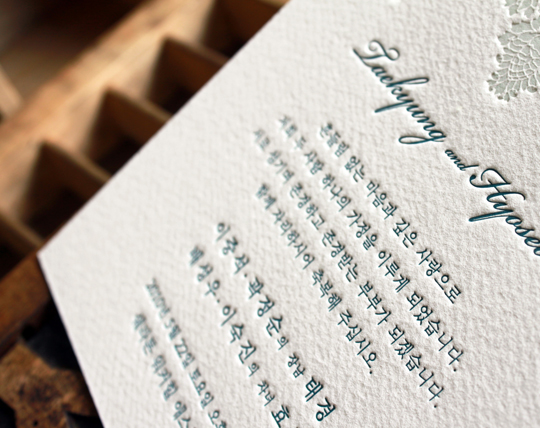 Taekyung and Hyose
흔들림 없는 마음과 깊은 사랑으로
저희 두 사람 하나의 가정을 이루게 되었습니다.
존경하고 존경받는 부부가 되겠습니다.
함께 자리하시어 축복해 주십시오.
이광석·곽경순의 장남 태경
이숙진의 차녀 효
22일 토요일 오